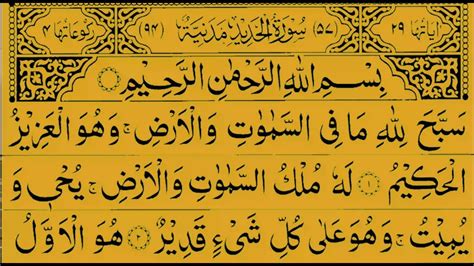 اٰيَاتُهَا ٢٩ (٥٧) سُوْرَةُ الْحَدِيْدِ مَدَنِيَّةٌ (٩٤) رُكُوْعَاتُهَا ٤
بِسْمِ اللّٰهِ الرَّحْمٰنِ الرَّحِيْمِ
سَبَّحَ لِلّٰهِ مَا فِى السَّمٰوٰتِ وَالْاَرْضِ ۚ وَهُوَ الْعَزِيْزُ
الْحَكِيْمُ ۝١ لَهٗ مُلْكُ السَّمٰوٰتِ وَالْاَرْضِ ۚ يُحْىٖ وَ
يُمِيْتُ ۚ وَهُوَ عَلٰى كُلِّ شَىْءٍ قَدِيْرٌ ۝٢ هُوَ الْاَوَّلُ